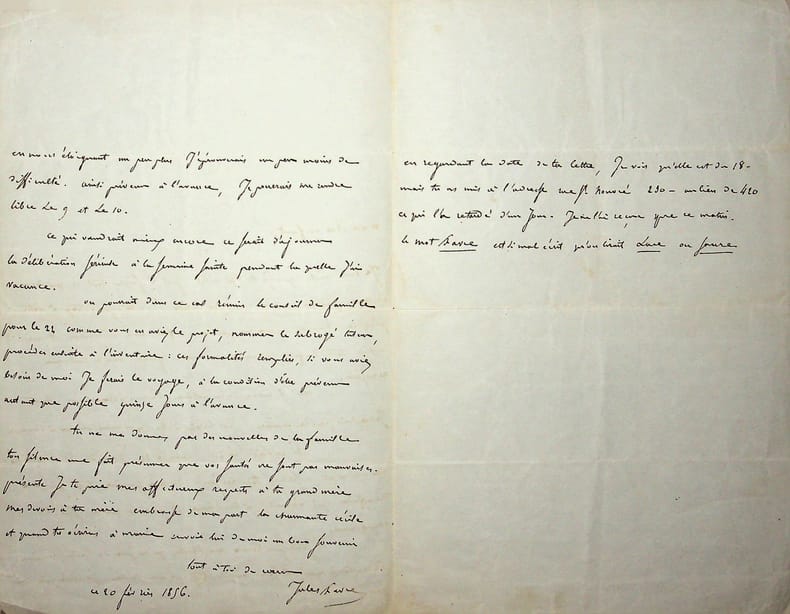 en nous éloignant un peu plus J'éprouverais un peu moins de
difficulté. ainsi prévenu à l'avance, Je pourrais me rendre
libre Le 9 et Le 10.
ce qui vaudrait mieux encore ce serait d'ajourner
la délibération sérieuse à la Semaine Sainte pendant la quelle J'ai
vacance.
on pourrait dans ce cas réunir le conseil de famille
pour le 24 comme vous en aviez le projet, nommer le subrogé tuteur,
procéder ensuite à l'inventaire : ces formalités remplies, si vous aviez
besoin de moi Je ferais le voyage, à la condition d'être prévenu
autant que possible quinze Jours à l'avance.
tu ne me donnes pas des nouvelles de ta famille
ton silence me fait présumer que vos santés ne sont pas mauvaises.
présente Je te prie mes affectueux respects à ta grand mère
mes devoirs à ta mère embrasse de ma part la charmante cécile
et quand tu écriras à envoie lui de moi un bon souvenir
tout à toi de cœur
ce 20 février 1856. Jules Favre
en regardant la date de ta lettre, Je vois qu'elle est du 18-
mais tu as mis à l'adresse rue St honoré 230 - au lieu de 420
ce qui l'a retardé d'un Jour. Je ne l'ai reçue que ce matin.
le mot Favre est si mal écrit qu'on lirait Lave ou Saure